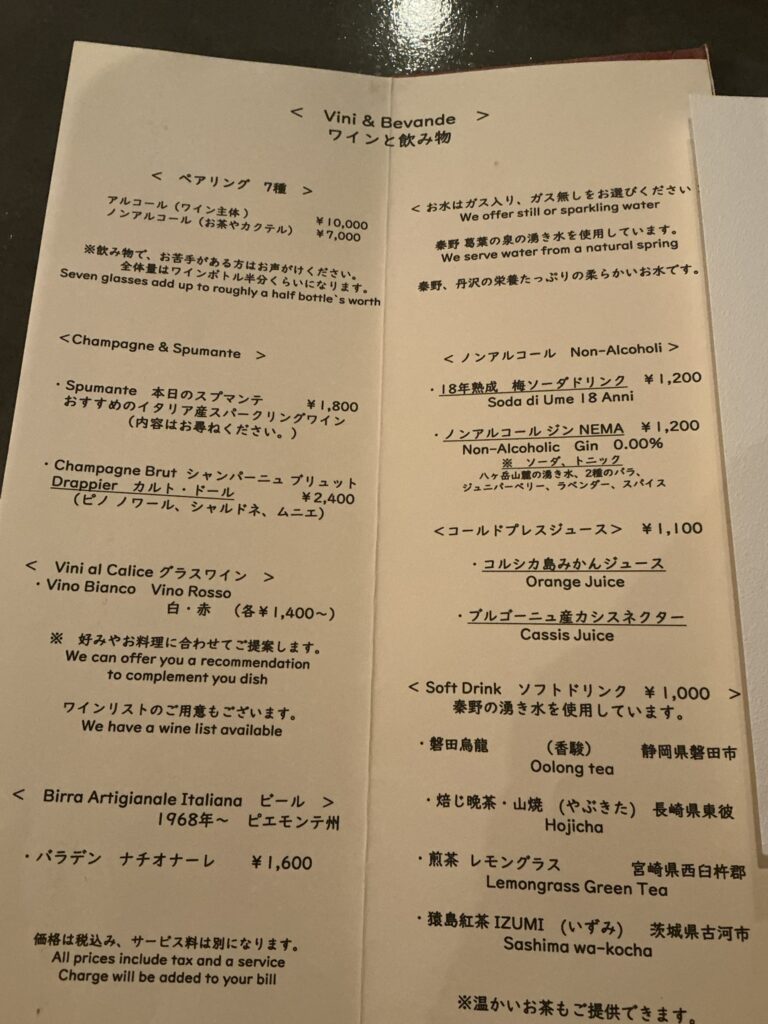 < Vini & Bevande >
ワインと飲み物
< ペアリング 7種 >
アルコール（ワイン主体） ￥10,000
ノンアルコール（お茶やカクテル） ￥7,000
※飲み物で、お苦手がある方はお声がけください。
全体量はワインボトル半分くらいになります。
Seven glasses add up to roughly a half bottle`s worth
<Champagne & Spumante >
・Spumante 本日のスプマンテ ￥1,800
おすすめのイタリア産スパークリングワイン
（内容はお尋ねください。）
・Champagne Brut シャンパーニュ ブリュット
Drappier カルト・ドール ￥2,400
（ピノ ノワール、シャルドネ、ムニエ）
< Vini al Calice グラスワイン >
・Vino Bianco Vino Rosso
白・赤 （各￥1,400〜）
※ 好みやお料理に合わせてご提案します。
We can offer you a recommendation
to complement you dish
ワインリストのご用意もございます。
We have a wine list available
< Birra Artigianale Italiana ビール >
1968年〜 ピエモンテ州
・バラデン ナチオナーレ ￥1,600
価格は税込み、サービス料は別になります。
All prices include tax and a service
Charge will be added to your bill
< お水はガス入り、ガス無しをお選びください
We offer still or sparkling water
秦野 葛葉の泉の湧き水を使用しています。
We serve water from a natural spring
秦野、丹沢の栄養たっぷりの柔らかいお水です。
< ノンアルコール Non-Alcoholi >
・18年熟成 梅ソーダドリンク ￥1,200
Soda di Ume 18 Anni
・ノンアルコール ジン NEMA ￥1,200
Non-Alcoholic Gin 0.00%
※ ソーダ、トニック
八ヶ岳山麓の湧き水、2種のバラ、
ジュニパーベリー、ラベンダー、スパイス
<コールドプレスジュース> ￥1,100
・コルシカ島みかんジュース
Orange Juice
・ブルゴーニュ産カシスネクター
Cassis Juice
< Soft Drink ソフトドリンク ￥1,000 >
秦野の湧き水を使用しています。
・磐田烏龍 （香駿） 静岡県磐田市
Oolong tea
・焙じ晩茶・山焼 （やぶきた） 長崎県東彼
Hojicha
・煎茶 レモングラス 宮崎県西臼杵郡
Lemongrass Green Tea
・猿島紅茶 IZUMI （いずみ） 茨城県古河市
Sashima wa-kocha
※温かいお茶もご提供できます。